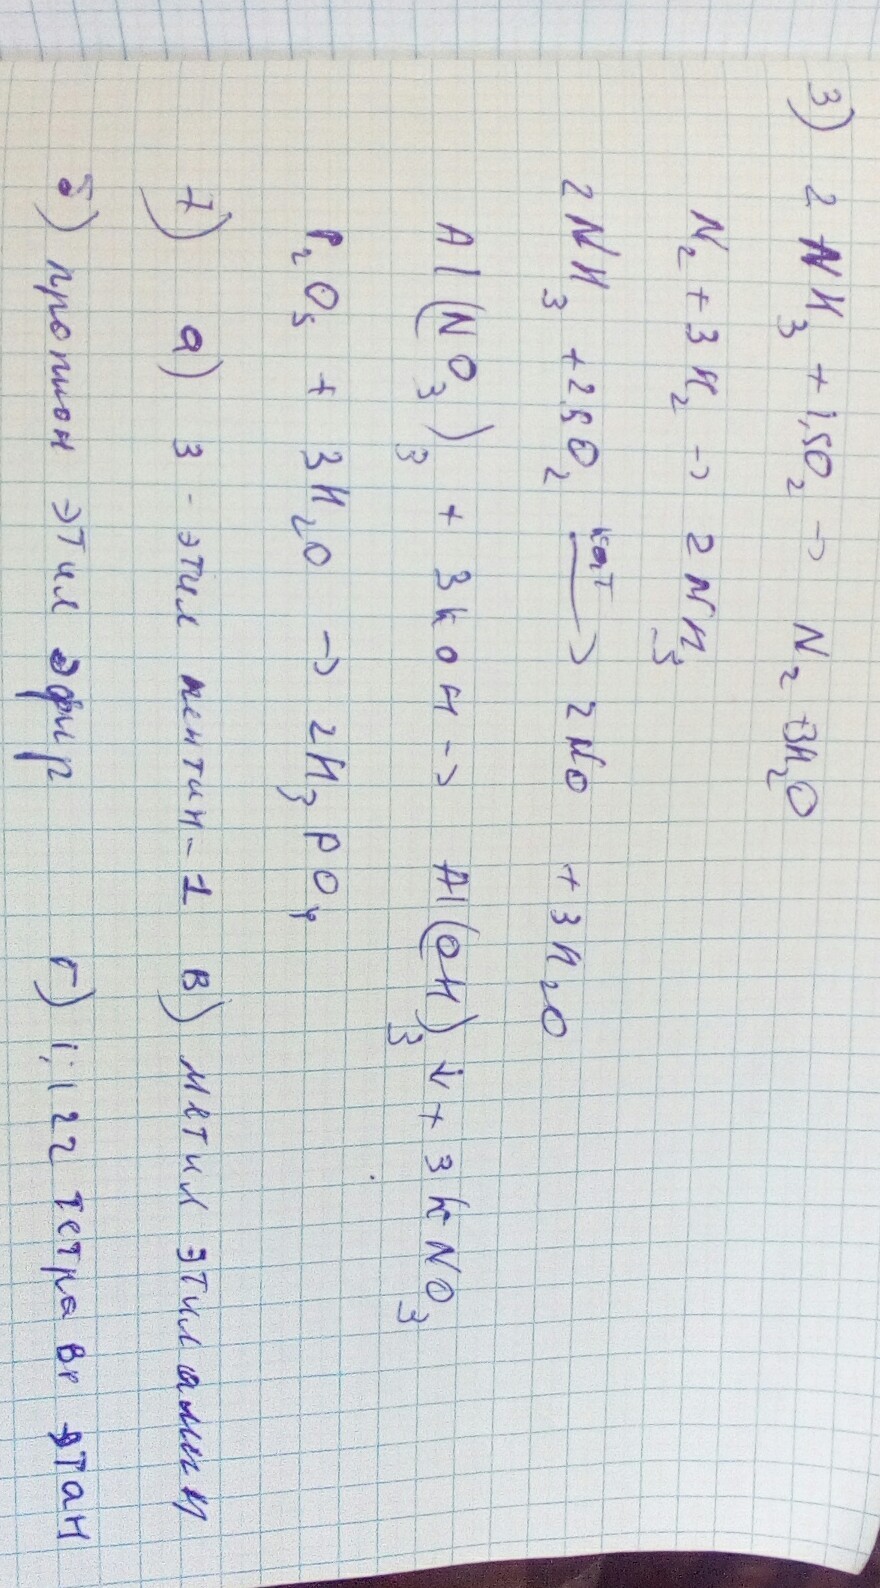 3) 2NH₃ + 1,5O₂ → N₂ + 3H₂O
N₂ + 3H₂ → 2NH₃
2NH₃ + 2,5O₂ кат → 2NO + 3H₂O
Al(NO₃)₃ + 3KOH → Al(OH)₃ ↓ + 3KNO₃
P₂O₅ + 3H₂O → 2H₃PO₄
7) а) 3-этил пентин-1 в) метил этиламин
б) пропион этил эфир г) 1,122 тетра Br этан